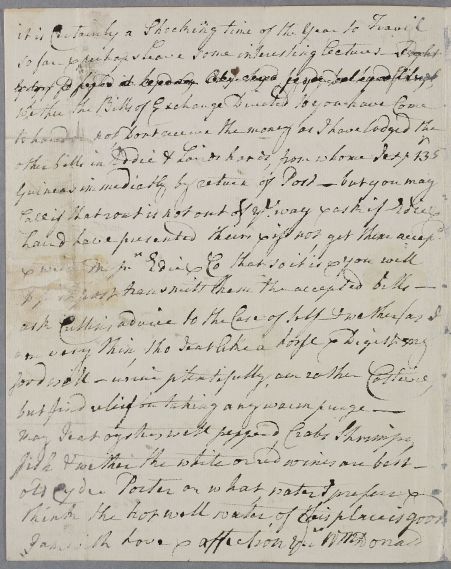 it is Certainly a Shocking time of the Year to Travil
so far & perhaps leave some interesting lectures
Whether the Bills of Exchange Directed to you have Come
to hand not dont receive the money as I have lodged the
other bills in Edie & Lairds hands from whome I exp 135
Guineas immediatly by return of Post — but you may
Call is that rout is not out of yr way & ask if Edie &
Laird have presented theirs & if not get them accepd
& write Mr Edie & Co that so it is & you will
by post transmitt them the accepted bills —
ask advice to the Case of self & wether as I
am very thin, tho I eat like a horse & Digest my
food well — urine plentifully, am rather Costive
but find relief on taking any warm purge —
may I eat oysters well pepperd Crabs Shrimps
fish & wether the white or red wines are best —
old Cyder Porter or what water I prefere &
think the hot well water of this place is good
I am with Love & affection yrs Wm Donald